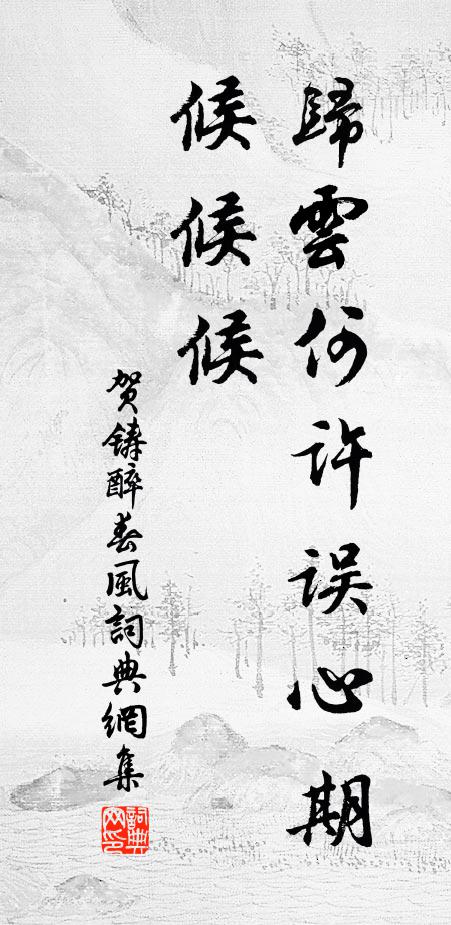 歸雲何许误心期
候候候
贺铸醉春風詞典網集
詞典網印